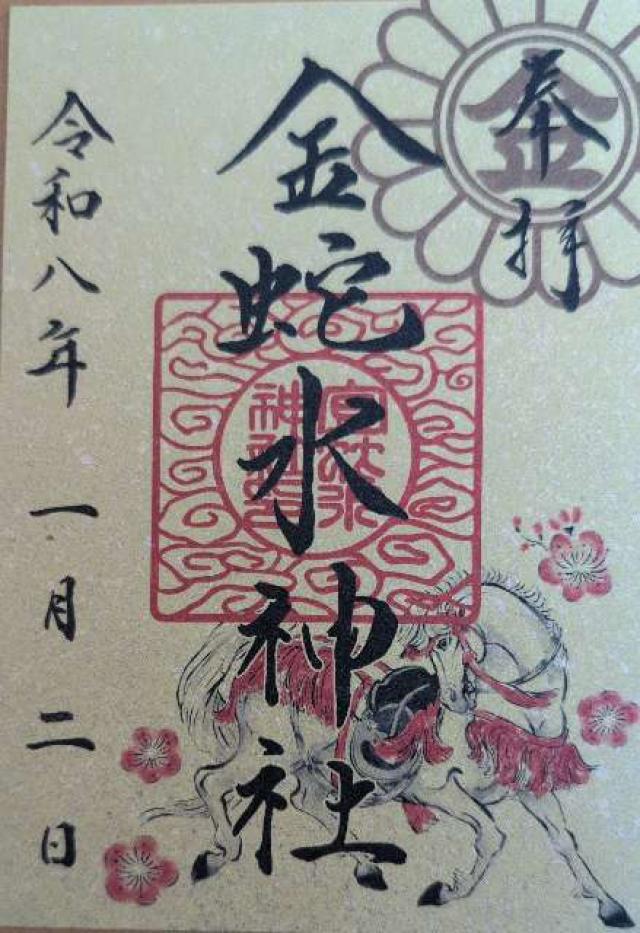 奉拝
金
金蛇水神社
令和八年 一月二日